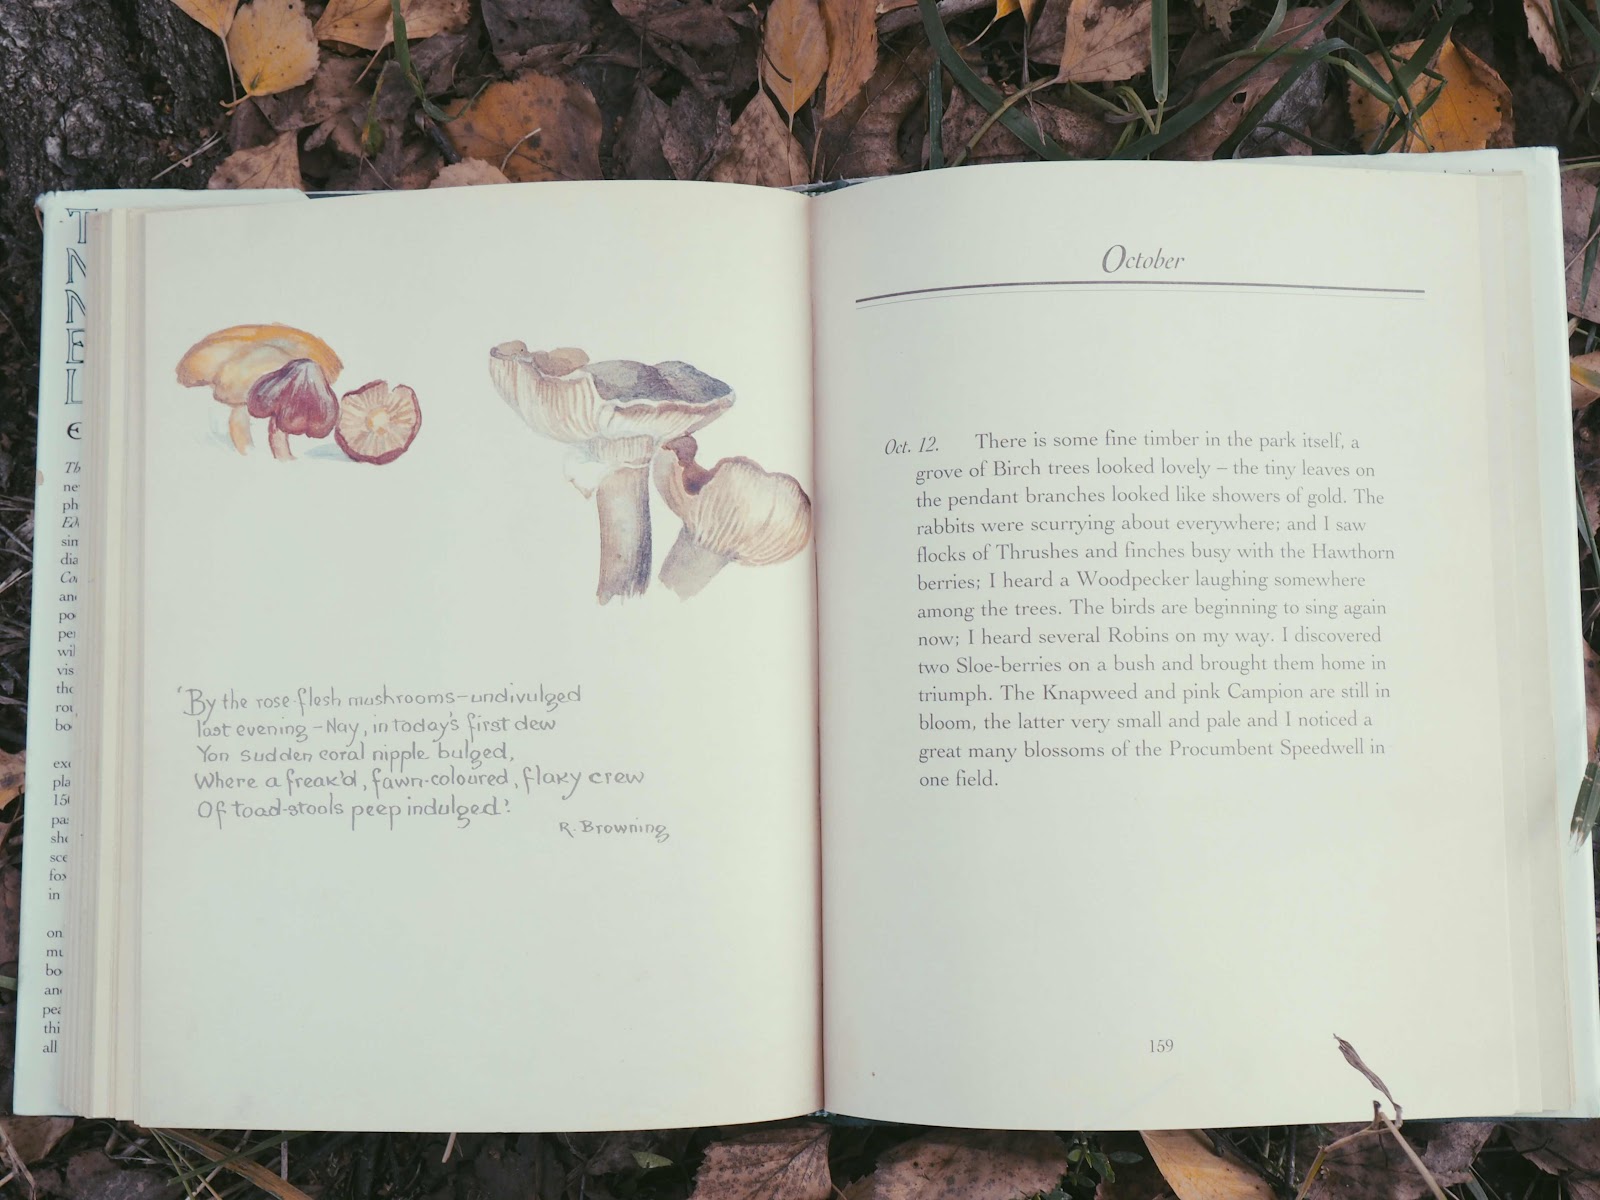 'By the rose-flesh mushrooms–undivulged
last evening – Nay, in today's first dew
Yon sudden coral nipple bulged,
Where a freak'd, fawn-coloured, flaky crew
Of toad-stools peep indulged'.
R. Browning
October
Oct. 12. There is some fine timber in the park itself, a
grove of Birch trees looked lovely – the tiny leaves on
the pendant branches looked like showers of gold. The
rabbits were scurrying about everywhere; and I saw
flocks of Thrushes and finches busy with the Hawthorn
berries; I heard a Woodpecker laughing somewhere
among the trees. The birds are beginning to sing again
now; I heard several Robins on my way. I discovered
two Sloe-berries on a bush and brought them home in
triumph. The Knapweed and pink Campion are still in
bloom, the latter very small and pale and I noticed a
great many blossoms of the Procumbent Speedwell in
one field.
159